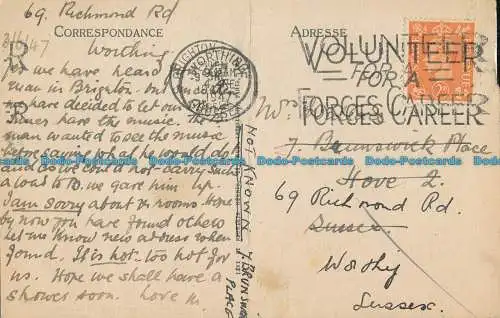 69. Richmond Rd
CORRESPONDANCE
Worthing
3/6/47
As we have heard
man in Brighton, but
we have decided to let our
have the music.
man wanted to see the music
before saying what he would do &
as we could not carry such
a load to B. we gave him up.
I am sorry about yr rooms. Hope
by now you have found others
Let me know new address when
found. It is hot - too hot for
us. Hope we shall have a
shower soon. Love
R
R
WORTHING
SUSSEX
NOT KNOWN
7. BRUNSWICK
PLACE
ADRESSE
VOLUNTEER
FOR
FOR A
FORCES CAREER
R
R
7. Brunswick Place
Hove 2.
69 Richmond Rd.
Sussex
Worthing
Sussex.
Dodo-Postcards